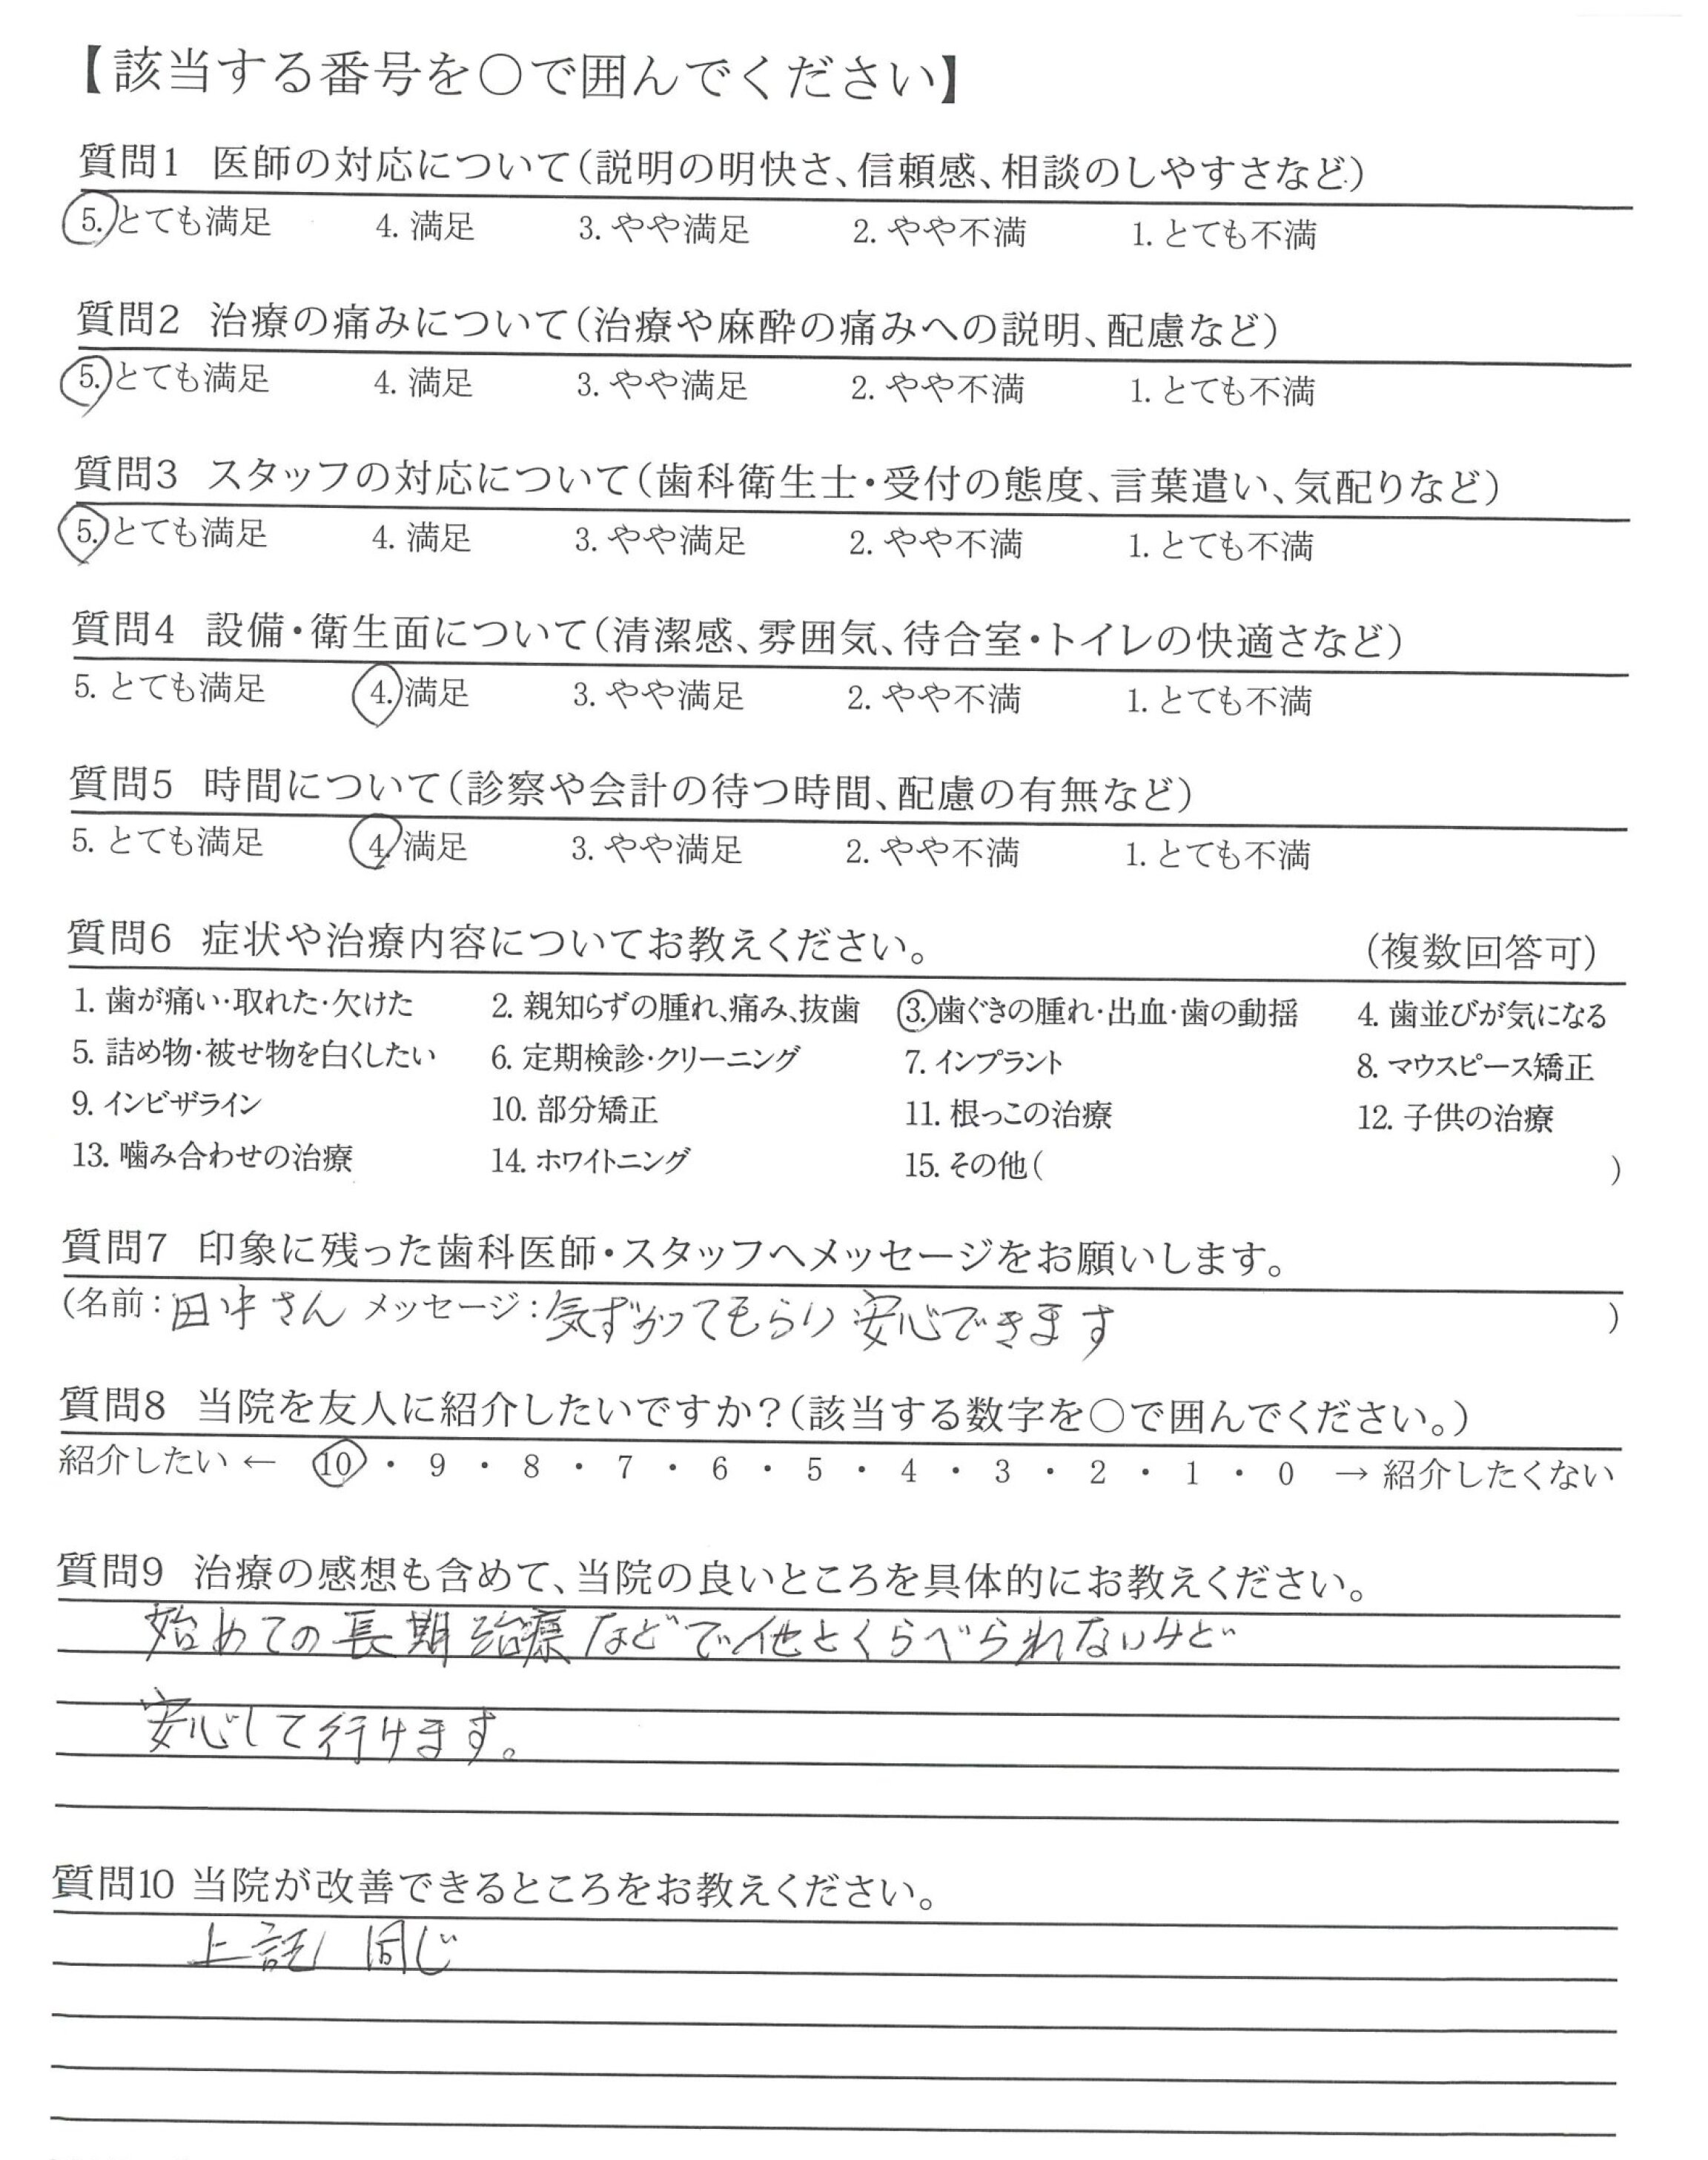 【該当する番号を○で囲んでください】
質問1 医師の対応について(説明の明快さ、信頼感、相談のしやすさなど)
5. とても満足 4. 満足 3. やや満足 2. やや不満 1. とても不満
質問2 治療の痛みについて(治療や麻酔の痛みへの説明、配慮など)
5. とても満足 4. 満足 3. やや満足 2. やや不満 1. とても不満
質問3 スタッフの対応について(歯科衛生士・受付の態度、言葉遣い、気配りなど)
5. とても満足 4. 満足 3. やや満足 2. やや不満 1. とても不満
質問4 設備・衛生面について(清潔感、雰囲気、待合室・トイレの快適さなど)
5. とても満足 4. 満足 3. やや満足 2. やや不満 1. とても不満
質問5 時間について(診察や会計の待つ時間、配慮の有無など)
5. とても満足 4. 満足 3. やや満足 2. やや不満 1. とても不満
質問6 症状や治療内容についてお教えください。 (複数回答可)
1. 歯が痛い・取れた・欠けた 2. 親知らずの腫れ、痛み、抜歯 3. 歯ぐきの腫れ・出血・歯の動揺 4. 歯並びが気になる
5. 詰め物・被せ物を白くしたい 6. 定期検診・クリーニング 7. インプラント 8. マウスピース矯正
9. インビザライン 10. 部分矯正 11. 根っこの治療 12. 子供の治療
13. 噛み合わせの治療 14. ホワイトニング 15. その他( )
質問7 印象に残った歯科医師・スタッフへメッセージをお願いします。
(名前:田中さん メッセージ:気ずかってもらい 安心できます )
質問8 当院を友人に紹介したいですか?(該当する数字を○で囲んでください。)
紹介したい ← 10 ・ 9 ・ 8 ・ 7 ・ 6 ・ 5 ・ 4 ・ 3 ・ 2 ・ 1 ・ 0 → 紹介したくない
質問9 治療の感想も含めて、当院の良いところを具体的にお教えください。
始めての長期治療などで他とくらべられないけど
安心して行けます。
質問10 当院が改善できるところをお教えください。
上記 同じ